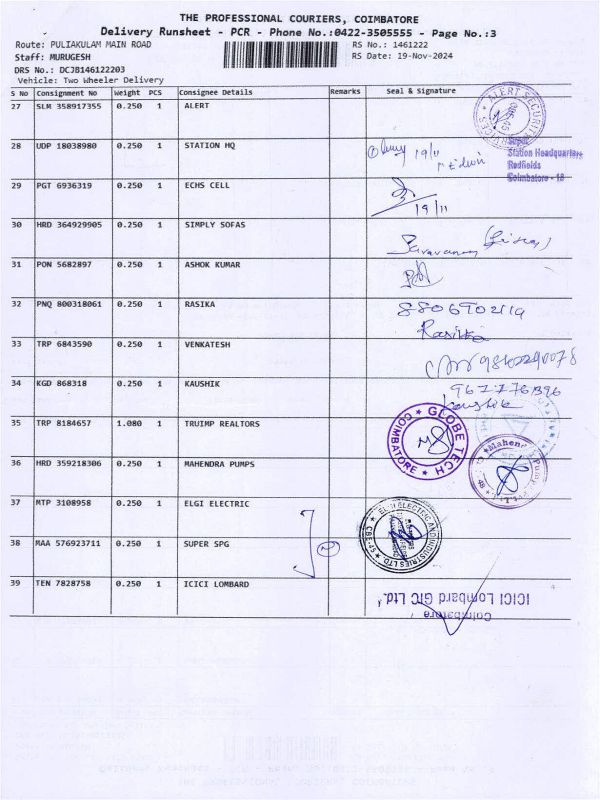 THE PROFESSIONAL COURIERS, COIMBATORE
Delivery Runsheet - PCR - Phone No.:0422-3505555 - Page No.:3
Route: PULIAKULAM MAIN ROAD RS No.: 1461222
Staff: MURUGESH RS Date: 19-Nov-2024
DRS No.: DCJB146122203
Vehicle: Two Wheeler Delivery
S No Consignment No Weight PCS Consignee Details Remarks Seal & Signature
27 SLM 358917355 0.250 1 ALERT
ALERT SECURITY
28 UDP 18038980 0.250 1 STATION HQ 19/11
Station Headquarters
Redfields
Coimbatore - 18
29 PGT 6936319 0.250 1 ECHS CELL
19/11
30 HRD 364929905 0.250 1 SIMPLY SOFAS
Saravanan
31 PON 5682897 0.250 1 ASHOK KUMAR
32 PNQ 800318061 0.250 1 RASIKA
Rasika
33 TRP 6843590 0.250 1 VENKATESH
34 KGD 868318 0.250 1 KAUSHIK
Kaushik
35 TRP 8184657 1.080 1 TRUIMP REALTORS
GLOBE TECH
COIMBATORE
36 HRD 359218306 0.250 1 MAHENDRA PUMPS
Mahendra Pumps
37 MTP 3108958 0.250 1 ELGI ELECTRIC
ELGI ELECTRIC AND INDUSTRIES LTD
38 MAA 576923711 0.250 1 SUPER SPG
39 TEN 7828758 0.250 1 ICICI LOMBARD
ICICI Lombard GIC Ltd.
Coimbatore